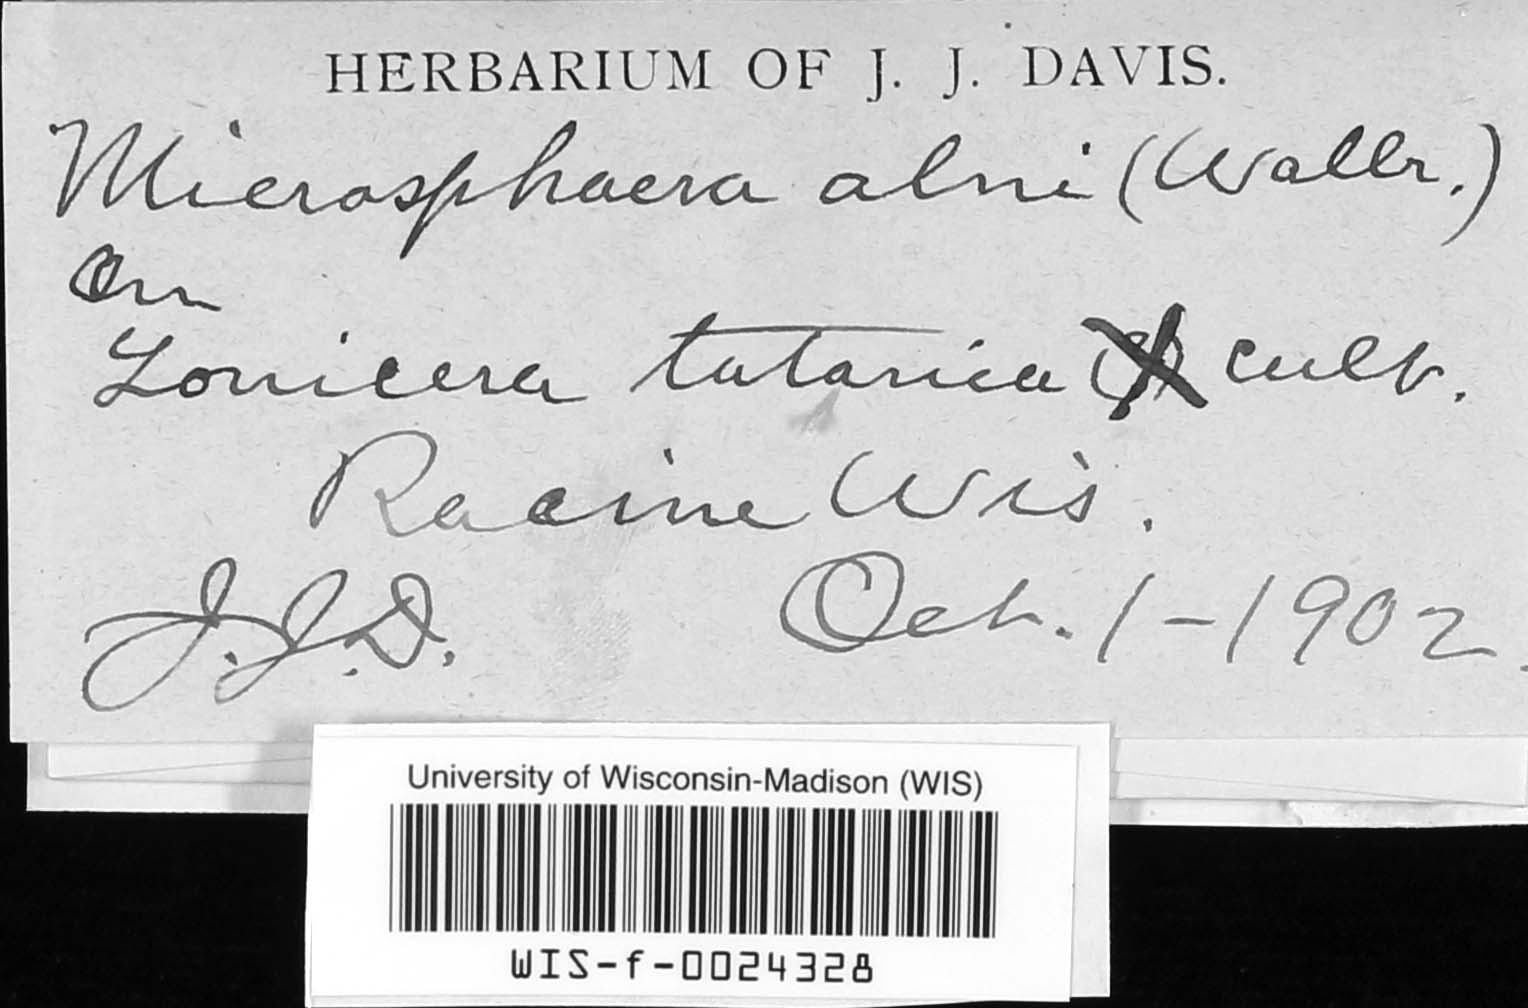 HERBARIUM OF J. J. DAVIS.
Microsphaera alni (Wallr.)
On
Lonicera tatarica cult.
Racine Wis.
J.J.D. Oct. 1-1902.
University of Wisconsin-Madison (WIS)
WIS-f-0024328